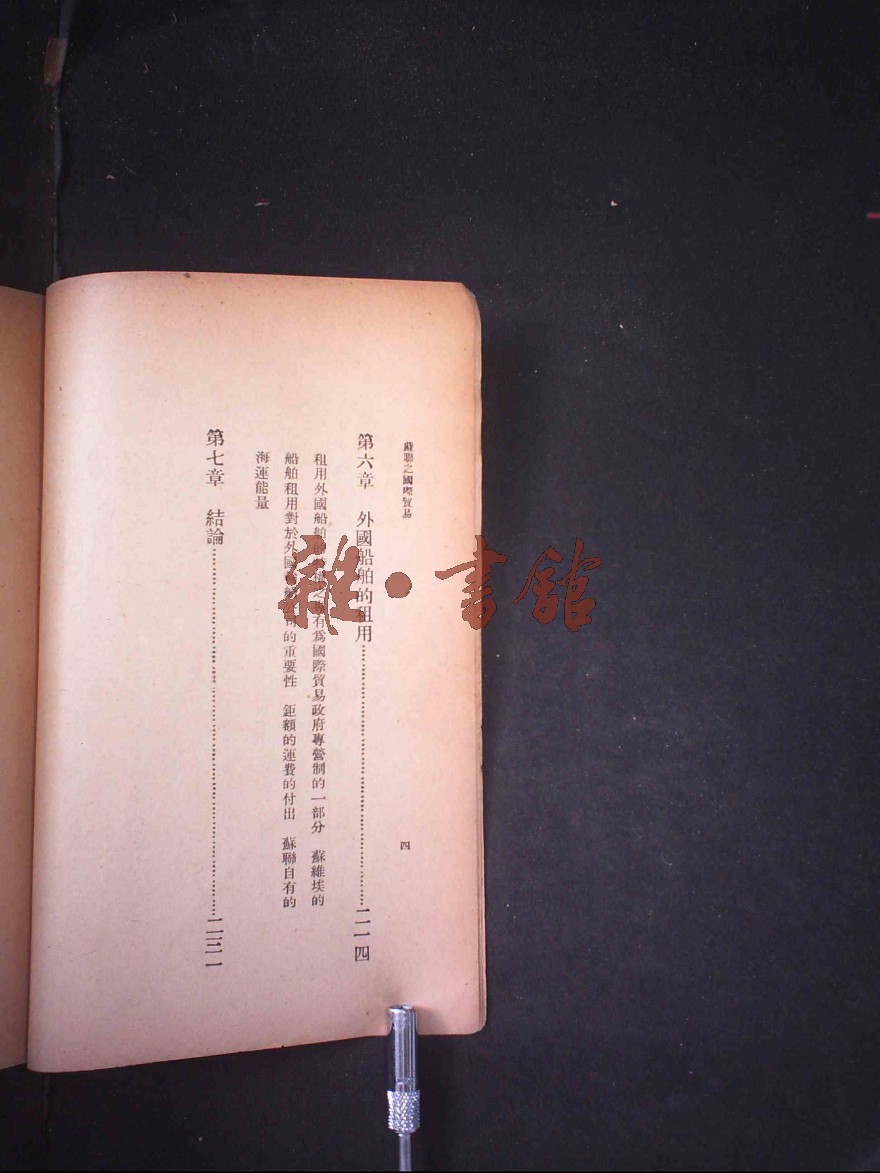 蘇聯之國際貿易
四
第六章　外國船舶的租用……二一四
租用外國船舶的有為國際貿易政府專營制的一部分　蘇維埃的
船舶租用對於外國的重要性　鉅額的運費的付出　蘇聯自有的
海運能量
第七章　結論……二三一
雜·書館